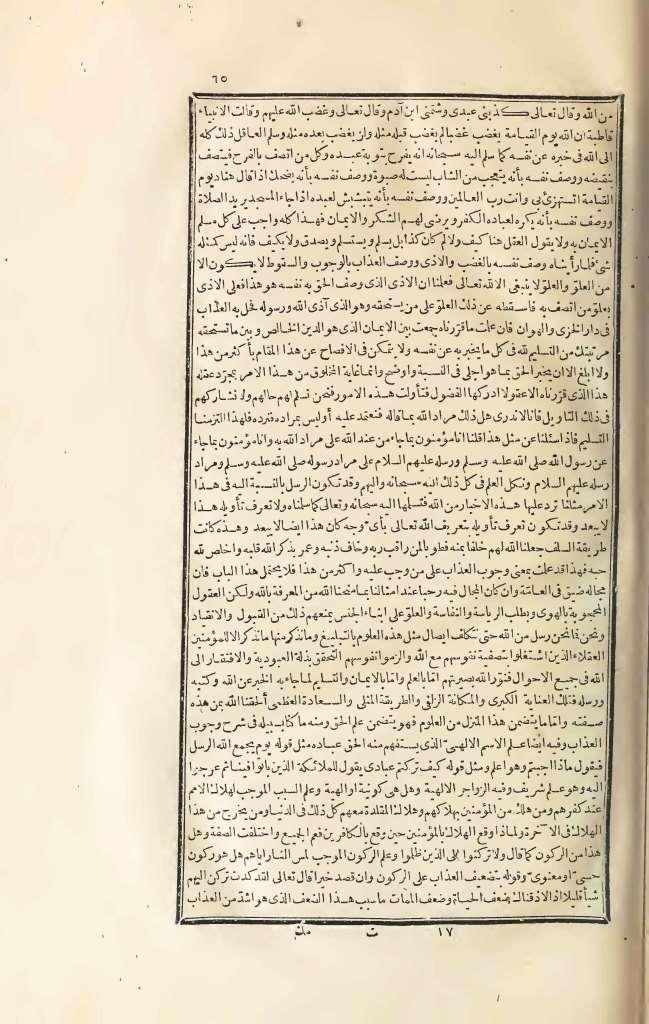 ٦٥
من الله وقال تعالى كذبنى عبدى وشتمنى ابن آدم وقال تعالى وغضب الله عليهم وقالت الانبياء
قاطبة ان الله يوم القيامة يغضب غضبا لم يغضب قبله مثله ولن يغضب بعده مثله وسلم العاقل ذلك كله
الى الله فى خبره عن نفسه كما سلم اليه سبحانه انه يفرح بتوبة عبده وكل من اتصف بالفرح فيتصف
بنقيضه ووصف نفسه بأنه يتعجب من الشاب ليست له صبوة ووصف نفسه بأنه يضحك اذا قال هناد يوم
القيامة اتستهزئ بى وانت رب العالمين ووصف نفسه بأنه يتبشبش لعبده اذا جاء المسجد يريد الصلاة
ووصف نفسه بأنه يكره لعباده الكفر ويرضى لهم الشكر والايمان فهذا كله واجب على كل مسلم
الايمان به ولا يقول العقل هنا كيف ولا لم كان كذا بل يسلم ويستسلم ويصدق ولا يكيف فانه ليس كمثله
شئ فلما رأيناه وصف نفسه بالغضب والاذى ووصف العذاب بالوجوب والسقوط لا يكون الا
من العلو والعلو لا ينبغى الا لله تعالى فعلمنا ان الاذى الذى وصف الحق به نفسه هو هذا فعلى الاذى
بعلو من اتصف به فاسقطه عن ذلك العلو على من يستحقه وهو الذى آذى الله ورسوله فحل به العذاب
فى دار الخزى والهوان فان علمت ما قررناه جمعت بين الايمان الذى هو الدين الخالص وبين ما تستحقه
مرتبتك من التسليم لله فى كل ما يخبر به عن نفسه ولا يتمكن فى الافصاح عن هذا المقام بأكثر من هذا
ولا ابلغ الا ان يخبر الحق بما هو اجلى فى النسبة واوضح وانما غاية المخلوق من هذا الامر بمجرد عقله
هذا الذى قررناه الا عقولا ادركها الفضول فتأولت هذه الامور فنحن نسلم لهم حالهم ولا نشاركهم
فى ذلك التأويل فانا لا ندرى هل ذلك مراد الله بما قاله فنعتمد عليه أو ليس بمراده فنرده فلهذا التزمنا
التسليم فاذا سئلنا عن مثل هذا قلنا انا مؤمنون بما جاء من عند الله على مراد الله به وانا مؤمنون بما جاء
عن رسول الله صلى الله عليه وسلم ورسله عليهم السلام على مراد رسوله صلى الله عليه وسلم ومراد
رسله عليهم السلام ونكل العلم فى كل ذلك اليه سبحانه واليهم وقد تكون الرسل بالنسبة اليه فى هذا
الامر مثلنا ترد عليها هذه الاخبار من الله فتسلمها اليه سبحانه وتعالى كما سلمناه ولا تعرف تأويله هذا
لا يبعد وقد تكون تعرف تأويله بتعريف الله تعالى بأى وجه كان هذا ايضا لا يبعد وهذه كانت
طريقة السلف جعلنا الله لهم خلفا بمنه فطوبى لمن راقب ربه وخاف ذنبه وعمر بذكر الله قلبه واخلص لله
حبه فهذا قد علمك بمعنى وجوب العذاب على من وجب عليه واكثر من هذا فلا يحتمل هذا الباب فان
مجاله ضيق فى العامة وان كان المجال فيه رحبا عند امثالنا بما منحنا الله من المعرفة بالله ولكن العقول
المحجوبة بالهوى وبطلب الرياسة والنفاسة والعلو على ابناء الجنس يمنعهم ذلك من القبول والانقياد
ونحن فما نحن رسل من الله حتى نتكلف ايصال مثل هذه العلوم بالتبليغ وما نذكر منها ما نذكر الا للمؤمنين
العقلاء الذين اشتغلوا بتصفية نفوسهم مع الله والزموا نفوسهم التحقق بذلة العبودية والافتقار الى
الله فى جميع الاحوال فنور الله بصيرتهم اما بالعلم واما بالايمان والتسليم لما جاء به الخبر عن الله وكتبه
ورسله فتلك العناية الكبرى والمكانة الزلفى والطريقة المثلى والسعادة العظمى ألحقنا الله بمن هذه
صفته واما ما يتضمن هذا المنزل من العلوم فهو يتضمن علم الحق ومنه ما كتابيه فى شرح وجوب
العذاب وفيه ايضا علم الاسم الالهى الذى يستفهم منه الحق عباده مثل قوله يوم يجمع الله الرسل
فيقول ماذا اجبتم وهو اعلم ومثل قوله كيف تركتم عبادى يقول للملائكة الذين باتوا فينا ثم عرجوا
اليه وهو علم شريف وفيه الزواجر الالهية وهل هى كونية او الهية وعلم السبب الموجب لهلاك الامم
عند كفرهم ومن هلك من المؤمنين بهلاكهم وهلاك المقلدة معهم كل ذلك فى الدنيا ومن يخرج من هذا
الهلاك فى الآخرة ولماذا وقع الهلاك بالمؤمنين حين وقع بالكافرين فعم الجميع واختلفت الصفة وهل
هذا من الركون كما قال ولا تركنوا الى الذين ظلموا وعلم الركون الموجب لمس النار اياهم هل هو ركون
حسى او معنوى وقوله بتضعيف العذاب على الركون وان قصد خيرا قال تعالى لقد كدت تركن اليهم
شيأ قليلا اذا لاذقناك ضعف الحياة وضعف الممات ما سبب هذا الضعف الذى هو اشد من العذاب
١٧ ت مك